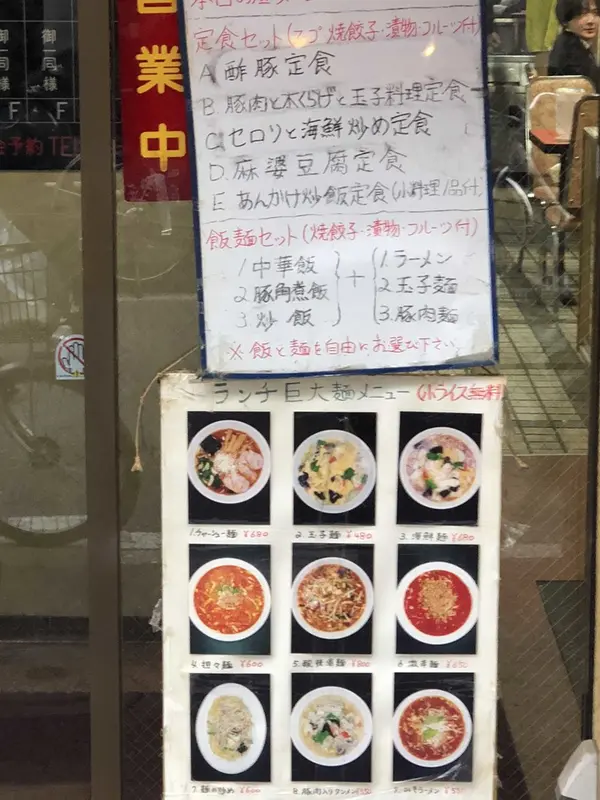 営業中
御一同様
御一同様
F
F
予約TEL
定食セット(スープ・焼餃子・漬物・フルーツ付)
A 酢豚定食
B. 豚肉と木くらげと玉子料理定食
C. セロリと海鮮炒め定食
D. 麻婆豆腐定食
E あんかけ炒飯定食(小料理1品付)
飯麺セット(焼餃子・漬物・フルーツ付)
1 中華飯
2 豚角煮飯
3 炒飯
+
1. ラーメン
2 玉子麺
3. 豚肉麺
※ 飯と麺を自由にお選び下さい
ランチ巨大麺メニュー(小ライス無料)
1. チャーシュー麺 ¥680
2 玉子麺 ¥480
3. 海鮮麺 ¥680
4. 担々麺 ¥600
5. 酸辣湯麺 ¥800
6. 激辛麺 ¥650
¥600
8. 豚肉入りタンメン
ラーメン